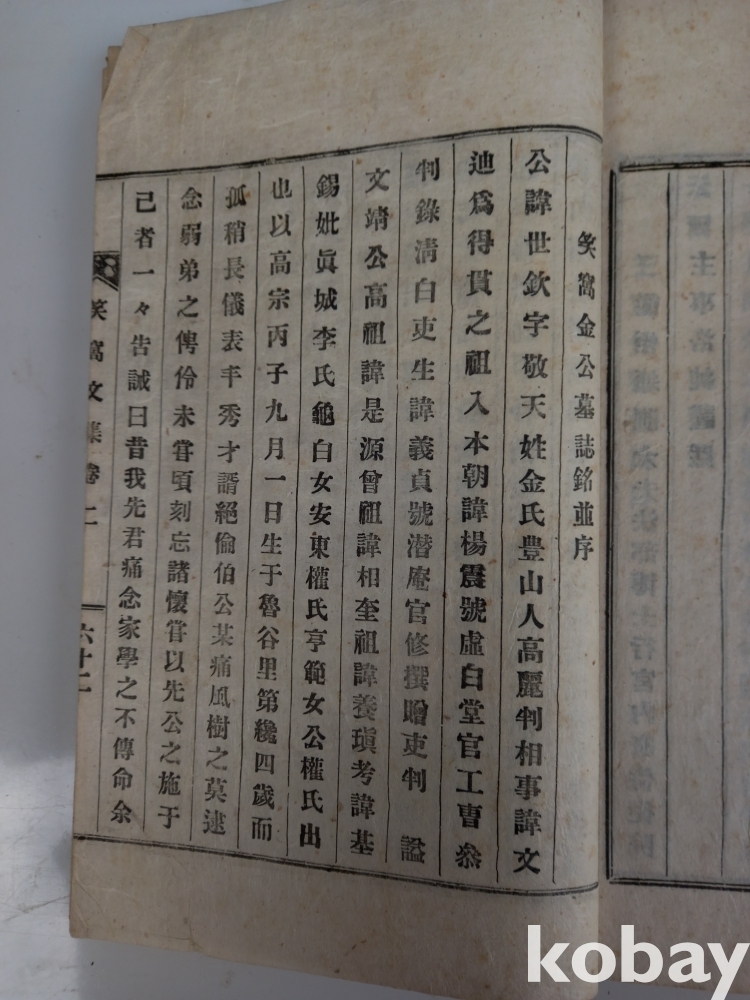 笑窩金公墓誌銘並序
公諱世欽字敬天姓金氏豊山人高麗判相事諱文
迪爲得貫之祖入本朝諱楊震號虛白堂官工曺叅
判錄淸白吏生諱義貞號潜庵官修撰贈吏判 謚
文靖公高祖諱是源曾祖諱相奎祖諱養瑱考諱基
錫妣眞城李氏龜白女安東權氏亨範女公權氏出
也以高宗丙子九月一日生于魯谷里第纔四歲而
孤稍長儀表丰秀才諝絕倫伯公某痛風樹之莫逮
念弱弟之俜伶未嘗頃刻忘諸懷嘗以先公之施于
己者一々告誡曰昔我先君痛念家學之不傳命余
笑窩文集卷二 六十二
kobay